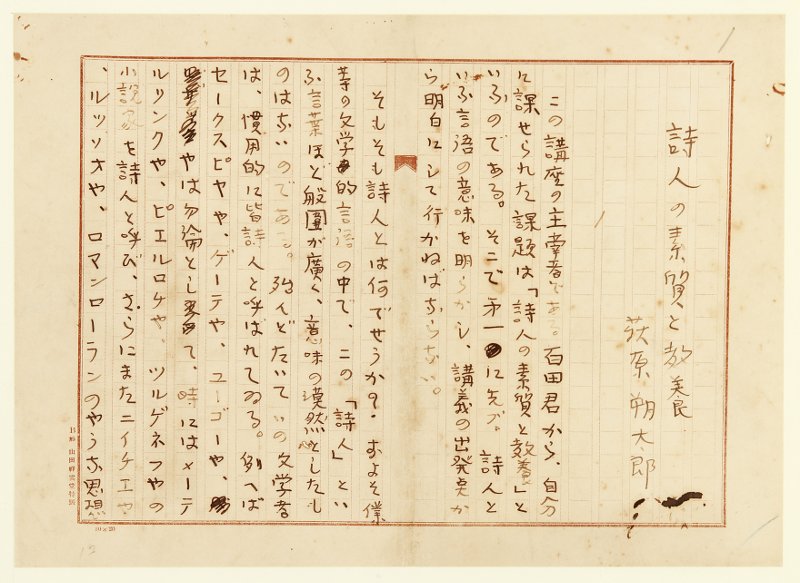 詩人の素質と敎養
萩原朔太郎
この講座の主宰者である。百田君から、自分
に課せられた課題は「詩人の素質と敎養」と
いふのである。そこで第一に先づ。詩人と
いふ言語の意味を明らかし、講義の出発点か
ら明白にして行かねばならない。
そもそも詩人とは何でせうか?およそ僕
等の文学的言語の中で、この「詩人」とい
ふ言葉ほど般囲が廣く、意味の漠然としたも
のはないのである。殆んどたいていの文学者
は、慣用的に皆詩人と呼ばれてゐる。例へば
セークスピヤや、ゲーテや、ユーゴーや、
やは勿論として、時にはメーテ
ルリンクや、ピエルロチや、ツルゲネフやの
小説家を詩人と呼び、さらにまたニイチエや
、ルッソオや、ロマンローランのやうな思想
10×20
13